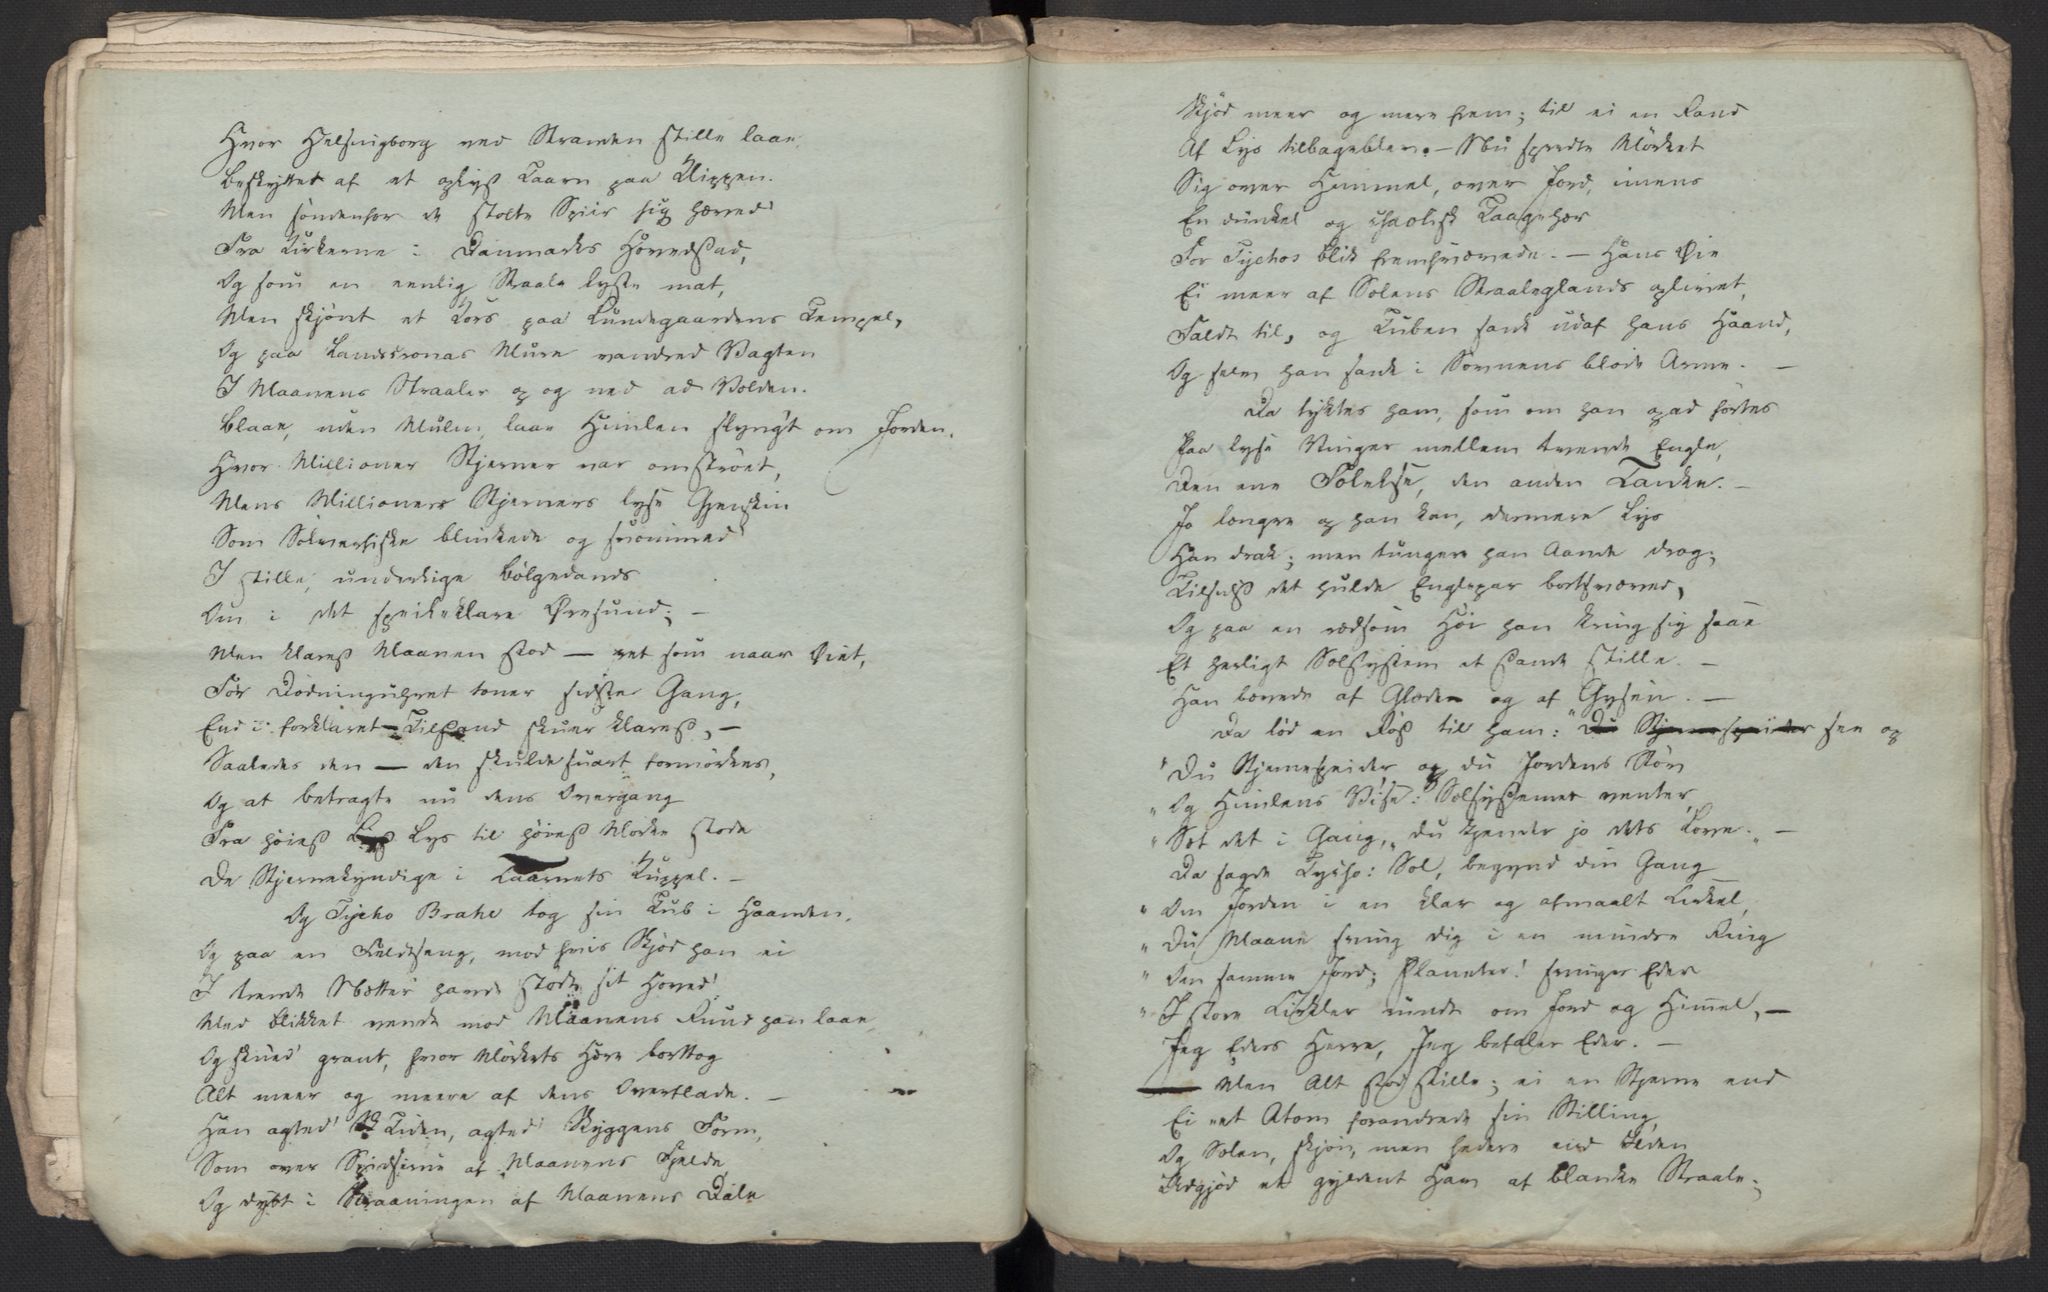 Hvor Helsingborg ved Stranden stille laae,
Beskyttet af et oplyst Taarn paa Klippen.
Men søndenfor de stolte Spiir sig hæved'
Fra Kirkerne i Danmarks Hovedstad,
Og som en eenlig Straale lyste mat,
Men skjønt et Kors paa Lundegaardens Tempel,
Og paa Landscronas Mure vandred Vagten
I Maanens Straaler op og ned ad Volden.
Blaae, uden Mulm, laae Himlen slyngt om Jorden,
Hvor Millioner Stjerner var omströet,
Mens Millioners Stjerners lyse Gjenskin
Som Sølverfiske blinkede og svömmed'
I stille, underlige Bölgedands
Om i det speileklare Øresund; –
Men klarest Maanen stod — ret som naar Øiet,
Før Dödninguhret toner sidste Gang,
End i forklaret Tilstand skuer klarest, –
Saaledes den — den skulde snart formörkes,
Og at betragte nu dens Overgang
Fra høiest Lys til høiest Mörke stode
De Stjernekyndige i Taarnets Kuppel. –
Og Tycho Brahe tog sin Tub i Haanden,
Og paa en Feldtseng, mod hvis Skjöd han ei
I trende Nætter havde stödt sit Hoved'
Med Blikket vendt mod Maanens Rund han laae,
Og skued' grant, hvor Mörkets Hære borttog
Alt meer og meere af dens Overflade. –
Han agted' Tiden, agted' Skyggens Form,
Som over Spidserne af Maanens Fjelde,
Og dybt i Skraaningen af Maanens Dale
Skjöd meer og mere frem; til ei en Rand
Af Lys tilbageblev. – Nu spredte Mörket
Sig over Himmel, over Jord, imens
En dunkel og chaotisk Taagehær
For Tychos Blik fremsvævede. – Hans Øie
Ei meer af Solens Straaleglands oplivet,
Faldt til, og Tuben sank udaf hans Haand,
Og selv han sank i Sövnens blöde Arme. –
Da tyktes ham, som om han opad förtes
Paa lyse Vinger mellem tvende Engle,
Den ene Fölelse, den anden Tanke. –
Jo længre op han kom, desmere Lys
Han drak; men tungere han Aande drog;
Tilsidst det hulde Englepar bortsvæved,
Og paa en rædsom Höi han kring sig saae
Et herligt Solsystem at stande stille. –
Han bæved af Glæde og af Gysen. –
Da löd en Röst til ham: "Du Stjernespeider see op
"Du Stjernespeider, op du Jordens Stöv
"Og Himlens Vise: Solsystemet venter,
"Sæt det i Gang, du kjender jo dets Love." –
Da sagde Tycho: Sol, begynd din Gang
"Om Jorden i en klar og afmaalt Cirkel,
"Du Maane sving dig i en mindre Ring
"Om samme Jord; Planeter! svinger Eder
"I store Cirkler rundt om Jord og Himel, –
Jeg Eders Herre, Jeg befaler Eder. –
— Men Alt stod stille; ei en Stjerne end
Ei et Atom forandrede sin Stilling,
Og Solen, skjön, men hedere end Ilden
Udgjöd et gyldent Hav af blanke Straaler;